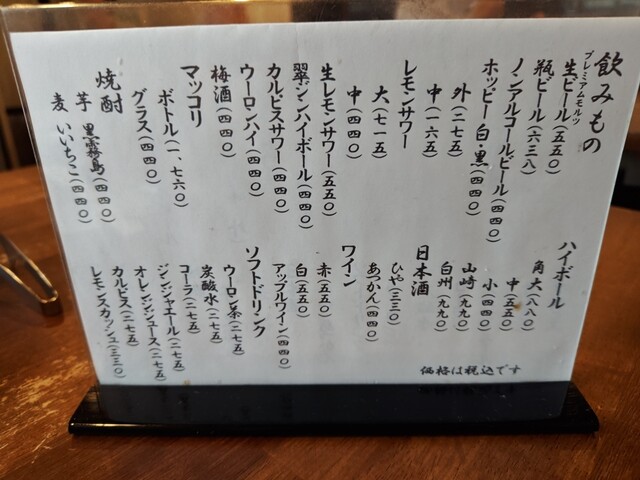 飲みもの
プレミアムモルツ
生ビール(五五〇)
瓶ビール(六三八)
ノンアルコールビール(四四〇)
ホッピー 白・黒(四四〇)
外(二七五)
中(一六五)
レモンサワー
大(七一五)
中(四四〇)
生レモンサワー(五五〇)
翠ジンハイボール(四四〇)
カルピスサワー(四四〇)
ウーロンハイ(四四〇)
梅酒(四四〇)
マッコリ
ボトル(一、七六〇)
グラス(四四〇)
焼酎
芋 黒霧島(四四〇)
麦 いいちこ(四四〇)
ハイボール
角 大(八八〇)
中(五五〇)
小(四四〇)
山崎(九九〇)
白州(九九〇)
日本酒
ひや(三三〇)
あつかん(四四〇)
ワイン
赤(五五〇)
白(五五〇)
アップルワイン(四四〇)
ソフトドリンク
ウーロン茶(二七五)
炭酸水(二七五)
コーラ(二七五)
ジンジャエール(二七五)
オレンジジュース(二七五)
カルピス(二七五)
レモンスカッシュ(三三〇)
価格は税込です